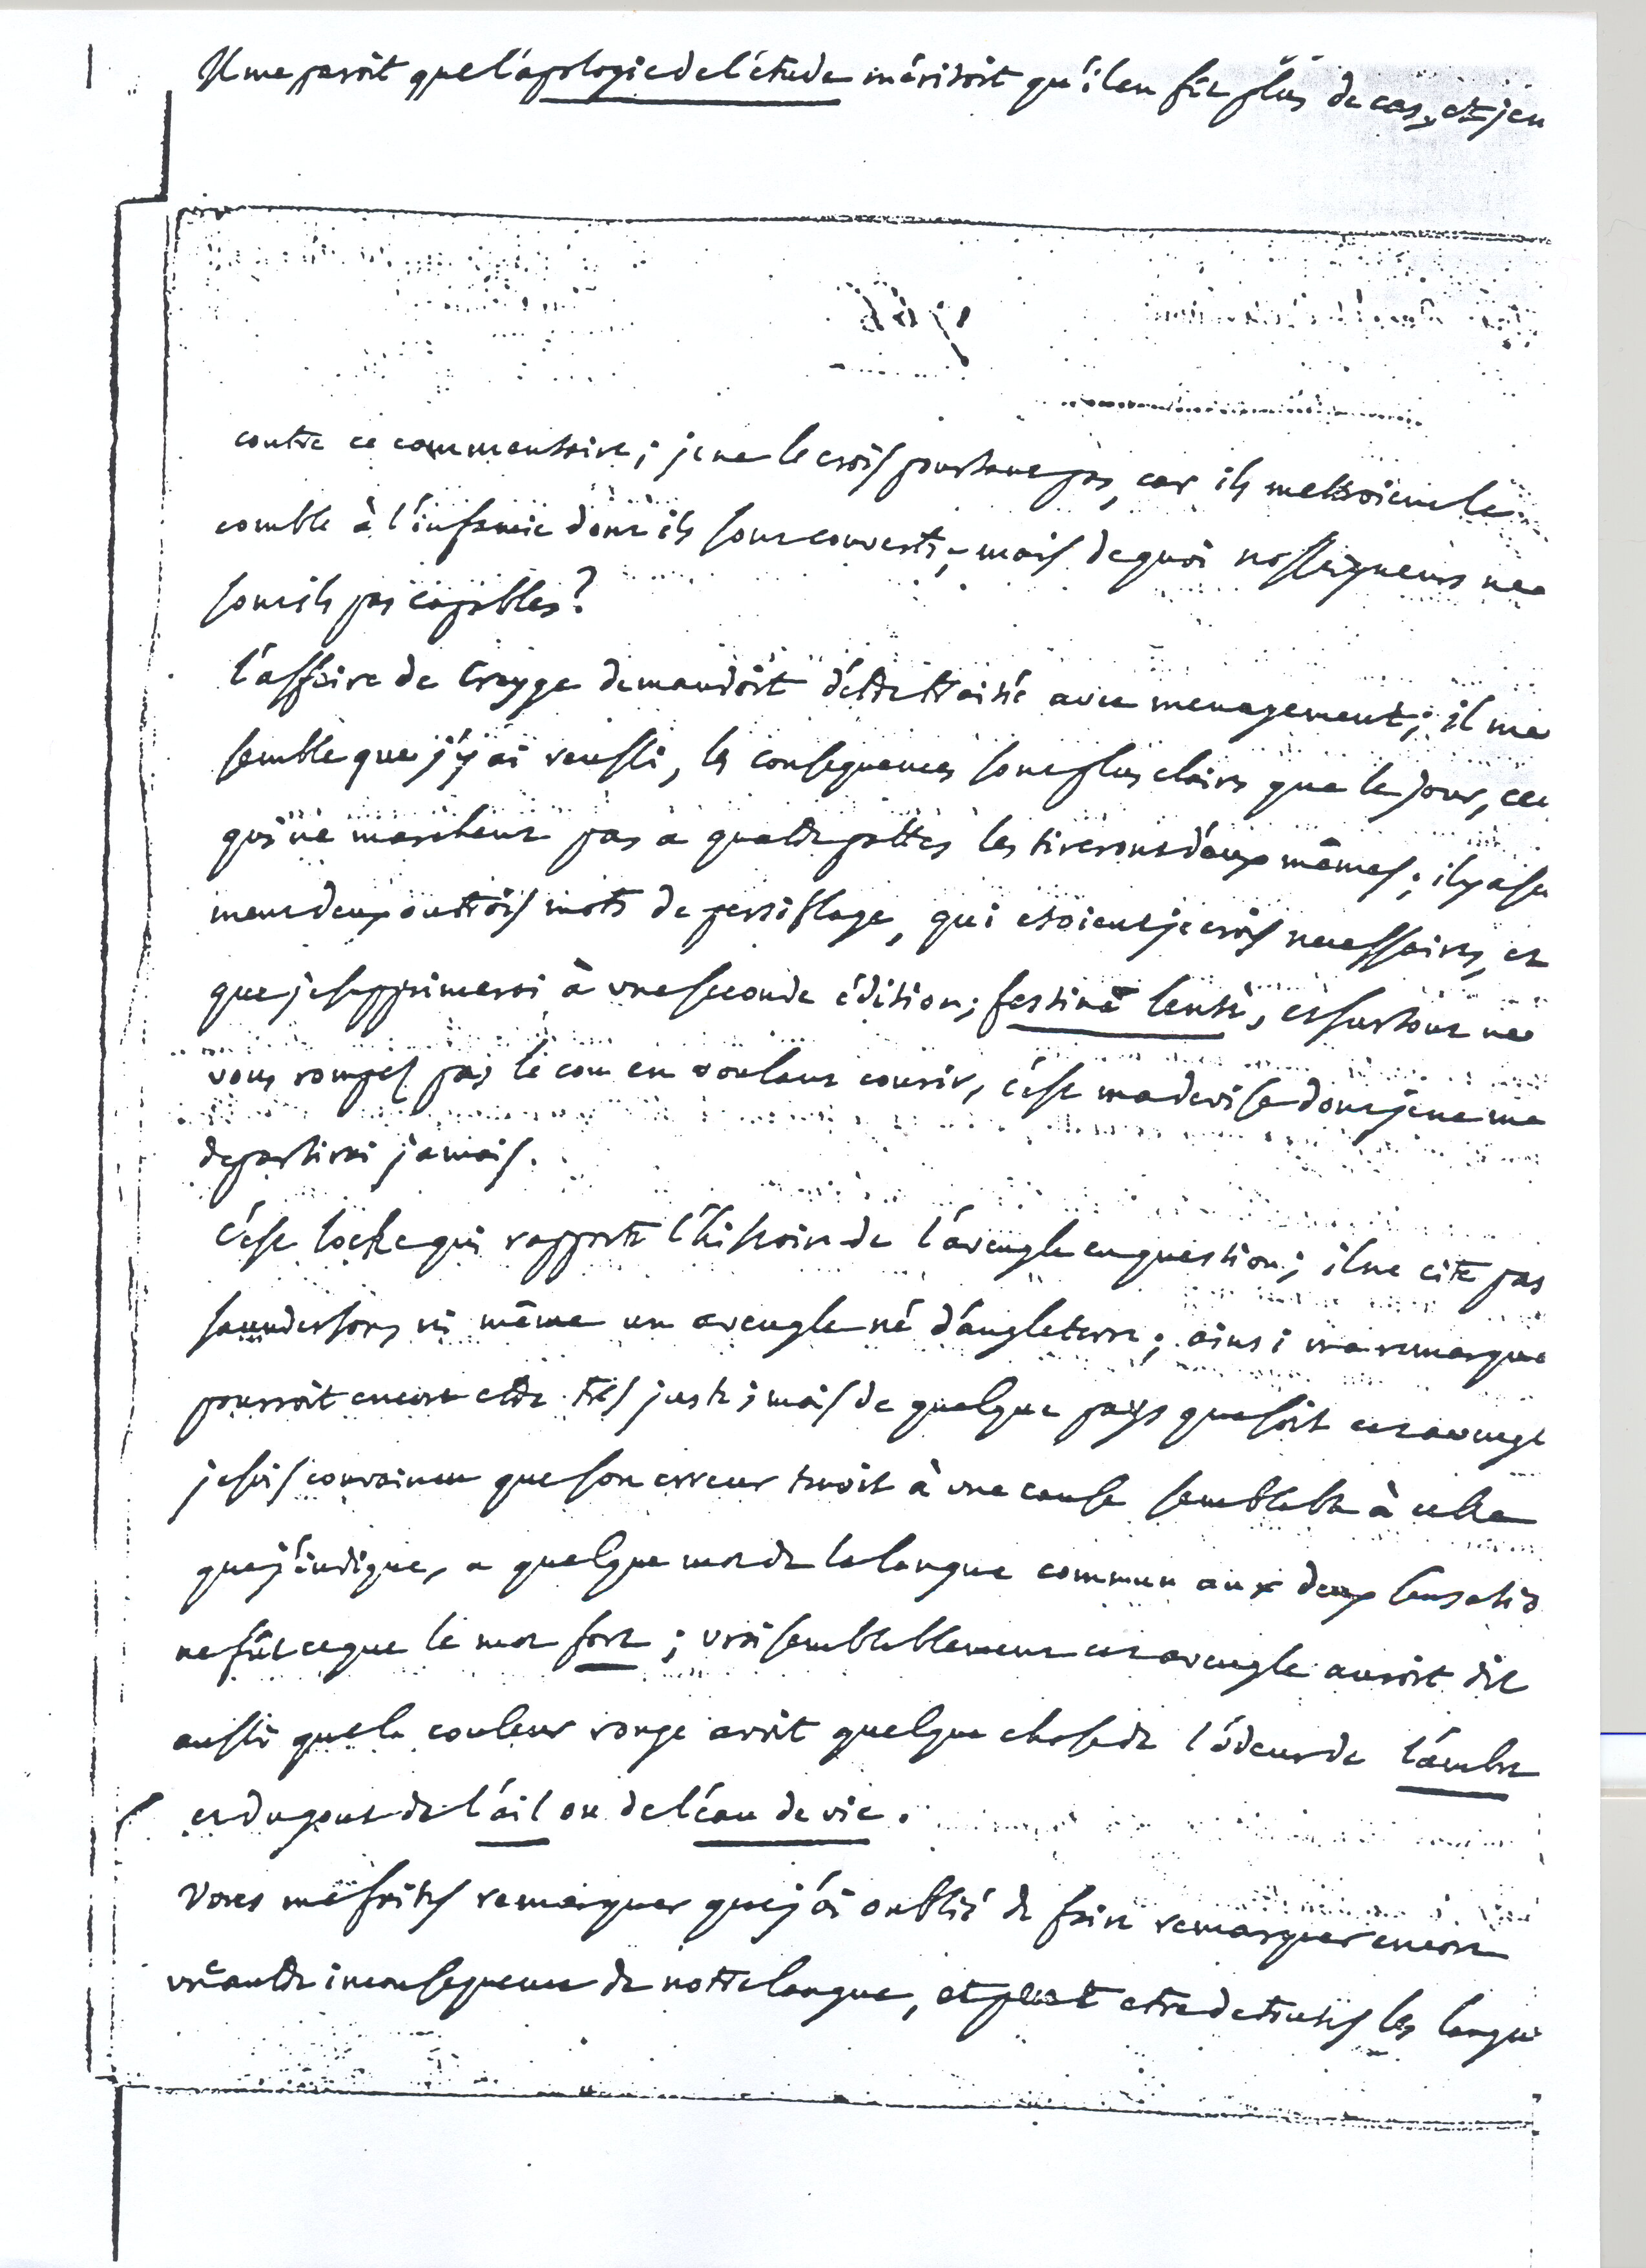 Il me paroit que l'apologie de l'étude méritoit qu'il en fit plus de cas, et j'en
contre ce commentaire; je ne le crois pourtant pas, car ils mettroient le
comble à l'infamie dont ils sont couverts; mais de quoi nosseigneurs ne
sont ils pas capables?
l'affaire de demandoit d'etre traitée avec menagement; il me
semble que j'y ai reussi, les consequences sont plus claires que le jour, ceux
qui ne marchent pas a quatre pattes les tireront d'eux mêmes; il y a seu
ment deux ou trois mots de persiflage, qui etoient je crois necessaires, et
que je supprimerai à une seconde édition; festinà lentè, et surtout ne
vous rompes pas le cou en voulant courir, c'est ma devise dont je ne me
departirai jamais.
c'est locke qui rapporte l'histoire de l'aveugle en question; il ne cite pas
saunderson, ni même un aveugle né d'angleterre; ainsi ma remarque
pourroit encore etre tres juste; mais de quelque pays que soit cet aveugl
je suis convaincu que son erreur tenoit à une cause semblable à celle
que j'indique, a quelque mot de la langue commun aux deux sensatio
ne fût ce que le mot fort; vraisemblablement cet aveugle auroit dit
aussi que la couleur rouge avoit quelque chose de l'odeur de l'ambre
et du gout de l'ail ou de l'eau de vie.
Vous me faites remarquer que j'ai oublié de faire remarquer encore
une autre inconsequence de notre langue, et peut etre de toutes les langu